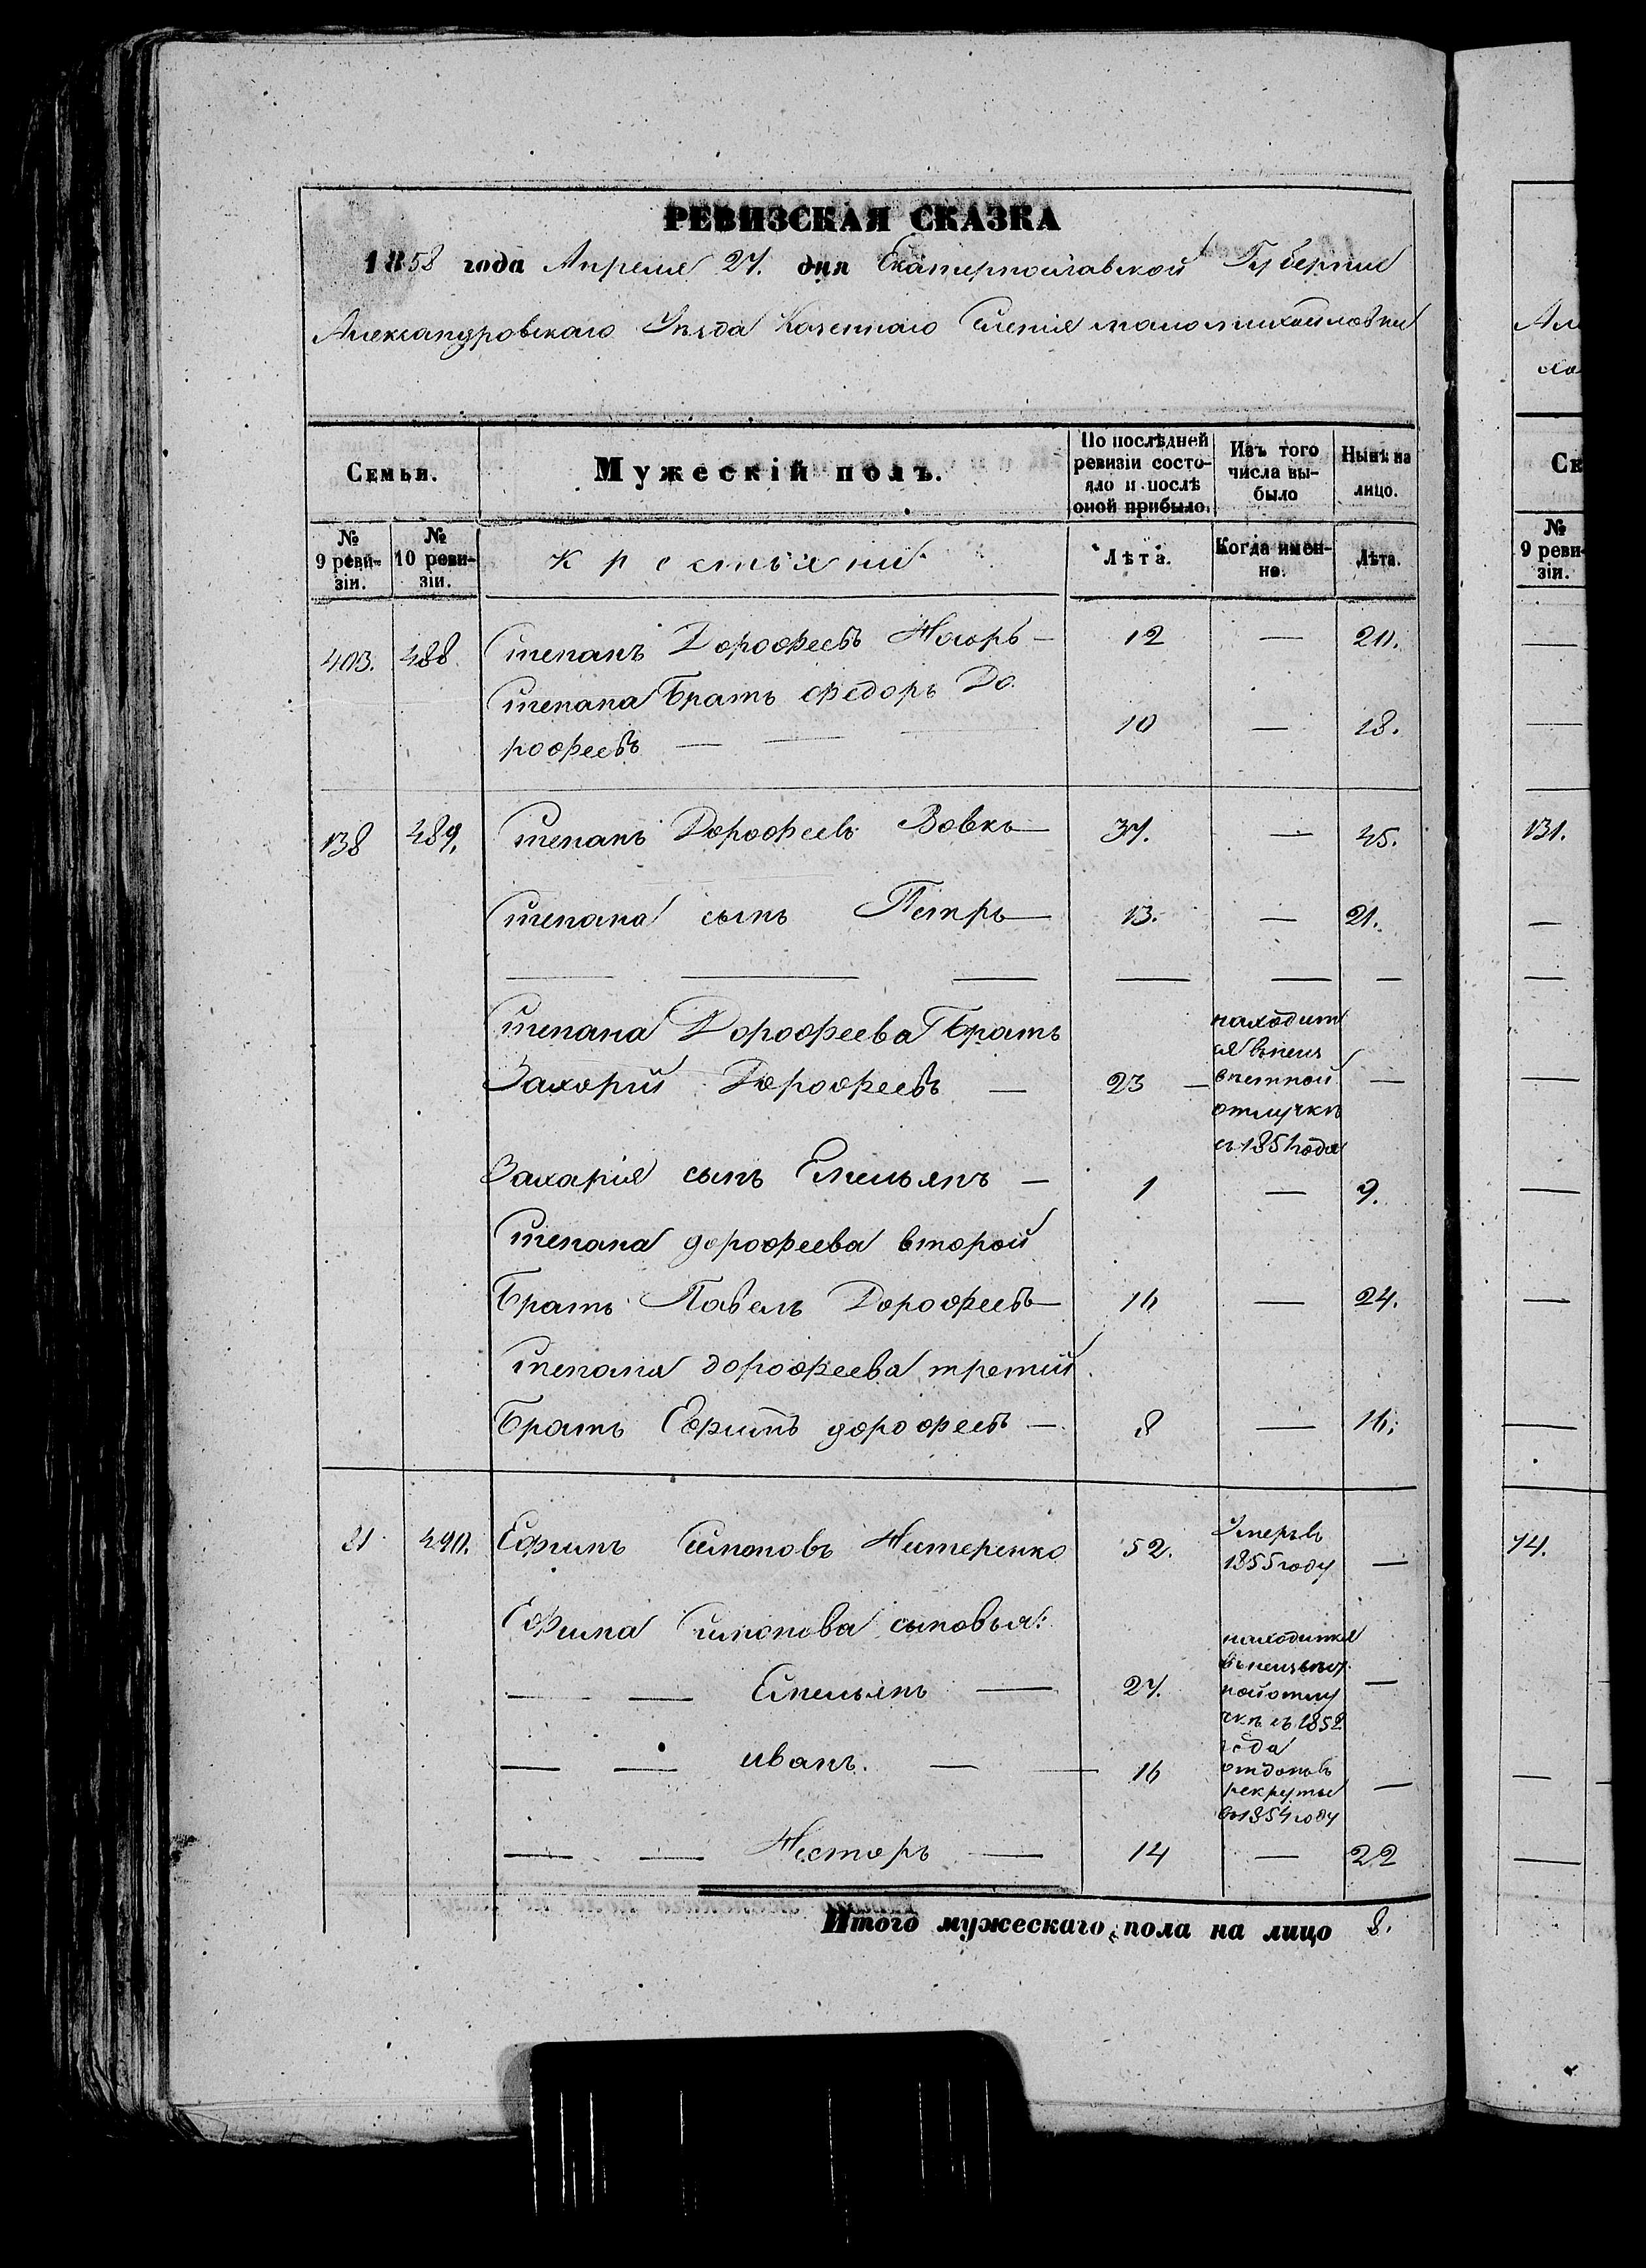 РЕВИЗСКАЯ СКАЗКА
1858 года Апреля 27. дня Екатеринославской Губернии
Александровскаго Уезда Казеннаго Селенія маломихайловки
Семьи.
Мужескій полъ.
По послѣдней ревизіи состояло и послѣ оной прибыло.
Изъ того числа выбыло
Нынѣ на лицо.
№ 9 ревизіи.
№ 10 ревизіи.
Крестьяни
Лѣта.
Когда именно.
Лѣта.
403. 488. Степанъ Дорофеевъ — 12 — 20.
Степана Братъ Федоръ До
рофеевъ — — — 10 — 18.
138 489. Степанъ Дорофеевъ Вовкъ — 37. — 45.
Степана сынъ Петръ — 13. — 21.
— — — — — —
Степана Дорофеева Братъ
Захорий Дорофеевъ — 23 — находит
ся въ неиз
вестной
отлучкѣ
съ 1851 года —
Захарія сынъ Емельянъ — 1 — 9.
Степана дорофеева второй
Братъ Павелъ Дорофеевъ — 16 — 24.
Степана дорофеева третий
Братъ Ефимъ дорофеевъ — 8 — 16.
21 490. Ефимъ Симоновъ Нестеренко 52. Умеръ въ
1855 году —
Ефима Симонова сыновья:
— — Емельянъ — 27. находится
въ неизвест
ной отлу
чкѣ съ 1852
года —
— — иванъ. — — 16 отданъ въ
рекруты
въ 1854 году —
— — Несторъ — 14 — 22
Итого мужескаго пола на лицо 8.
Ск
№ 9 ревизіи.
—
—
131.
—
—
—
—
—
—
74.
—
—